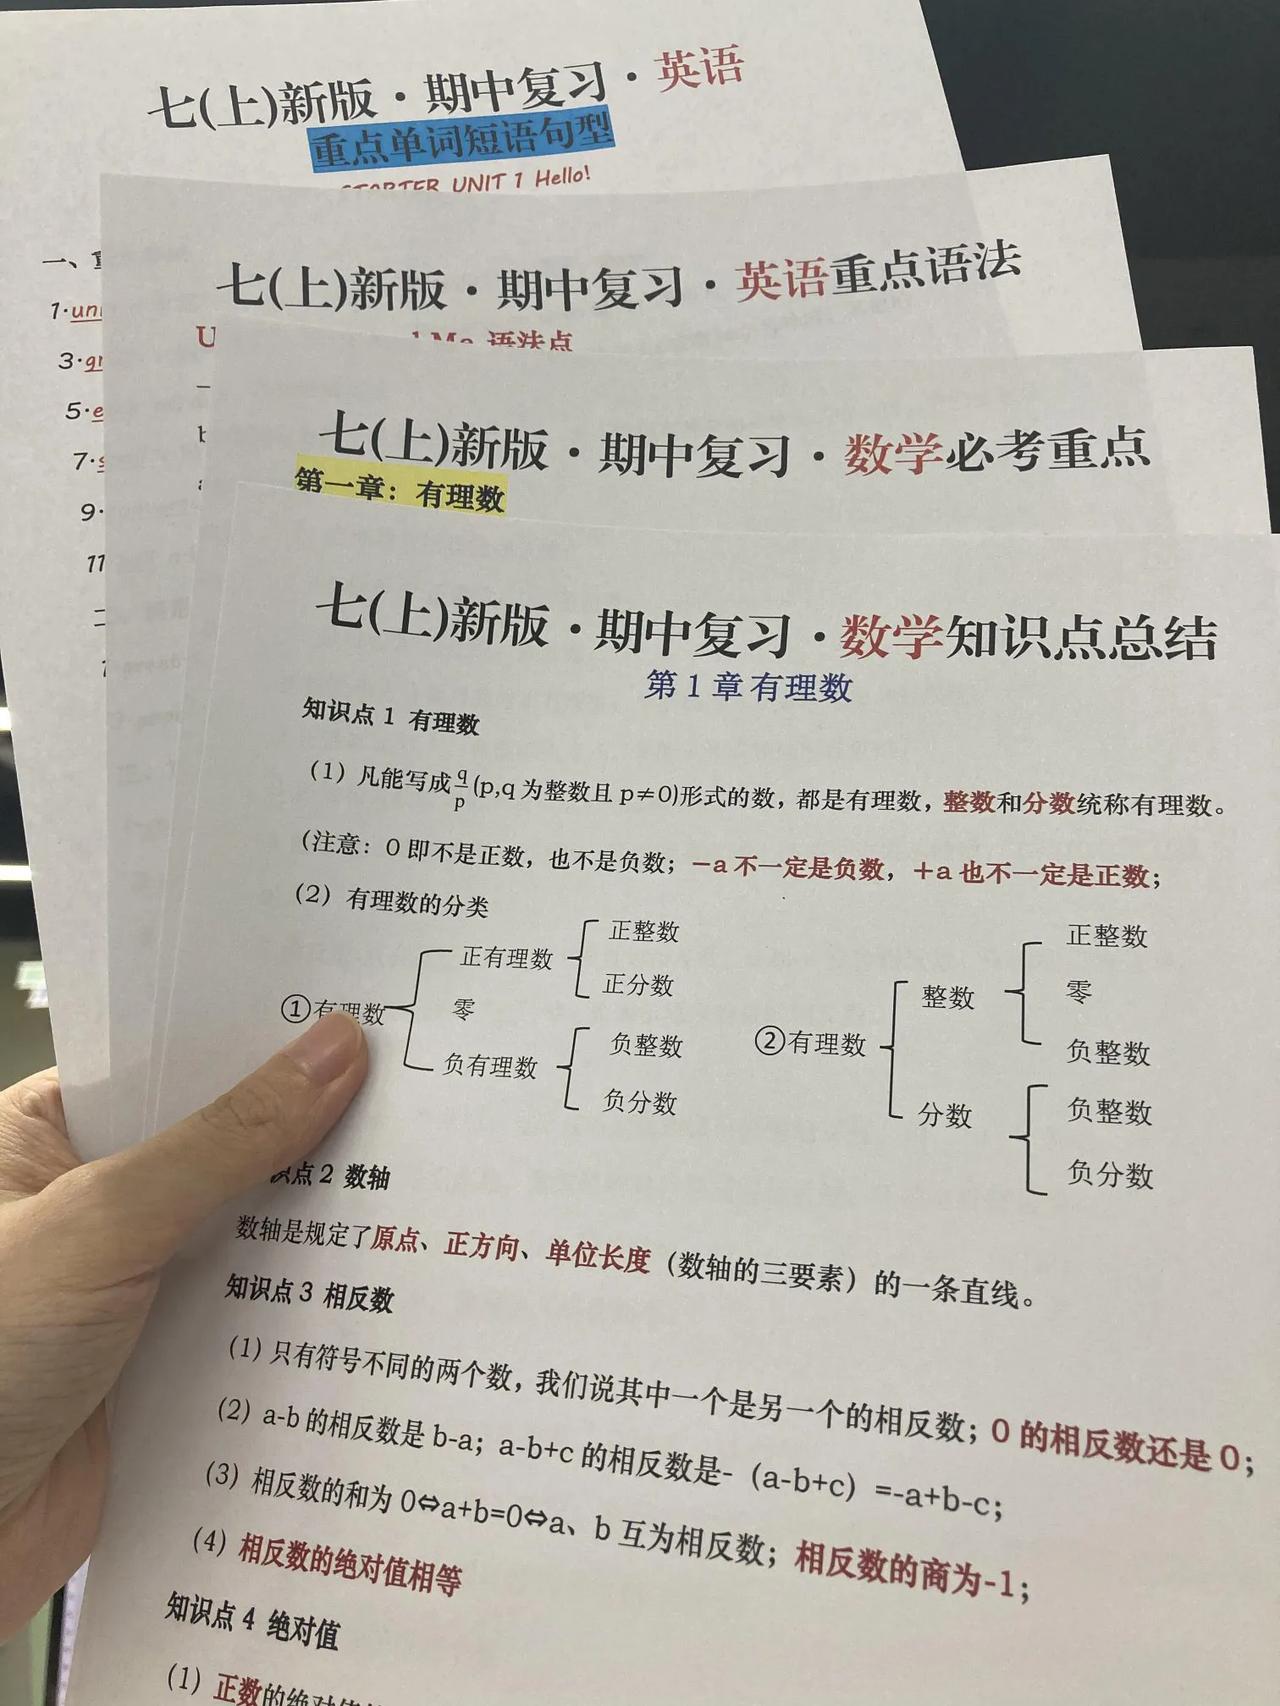 七(上)新版·期中复习·英语
重点单词短语句型
STARTER UNIT 1 Hello!
一、
1·
3·
5·
7·
9·
11
七(上)新版·期中复习·英语重点语法
语法点
七(上)新版·期中复习·数学必考重点
第一章：有理数
七(上)新版·期中复习·数学知识点总结
第1章 有理数
知识点1 有理数
(1) 凡能写成q/p(p,q为整数且p≠0)形式的数，都是有理数，整数和分数统称有理数。
(注意：0即不是正数，也不是负数；－a不一定是负数，＋a也不一定是正数；
(2) 有理数的分类
①有理数
正有理数
正整数
正分数
零
负有理数
负整数
负分数
②有理数
整数
正整数
零
负整数
分数
负整数
负分数
识点2 数轴
数轴是规定了原点、正方向、单位长度（数轴的三要素）的一条直线。
知识点3 相反数
(1) 只有符号不同的两个数，我们说其中一个是另一个的相反数；0的相反数还是0；
(2) a-b的相反数是b-a；a-b+c的相反数是-（a-b+c）=-a+b-c；
(3) 相反数的和为0⇔a+b=0⇔a、b互为相反数；相反数的商为-1；
(4) 相反数的绝对值相等
知识点4 绝对值
(1) 正数的绝对值